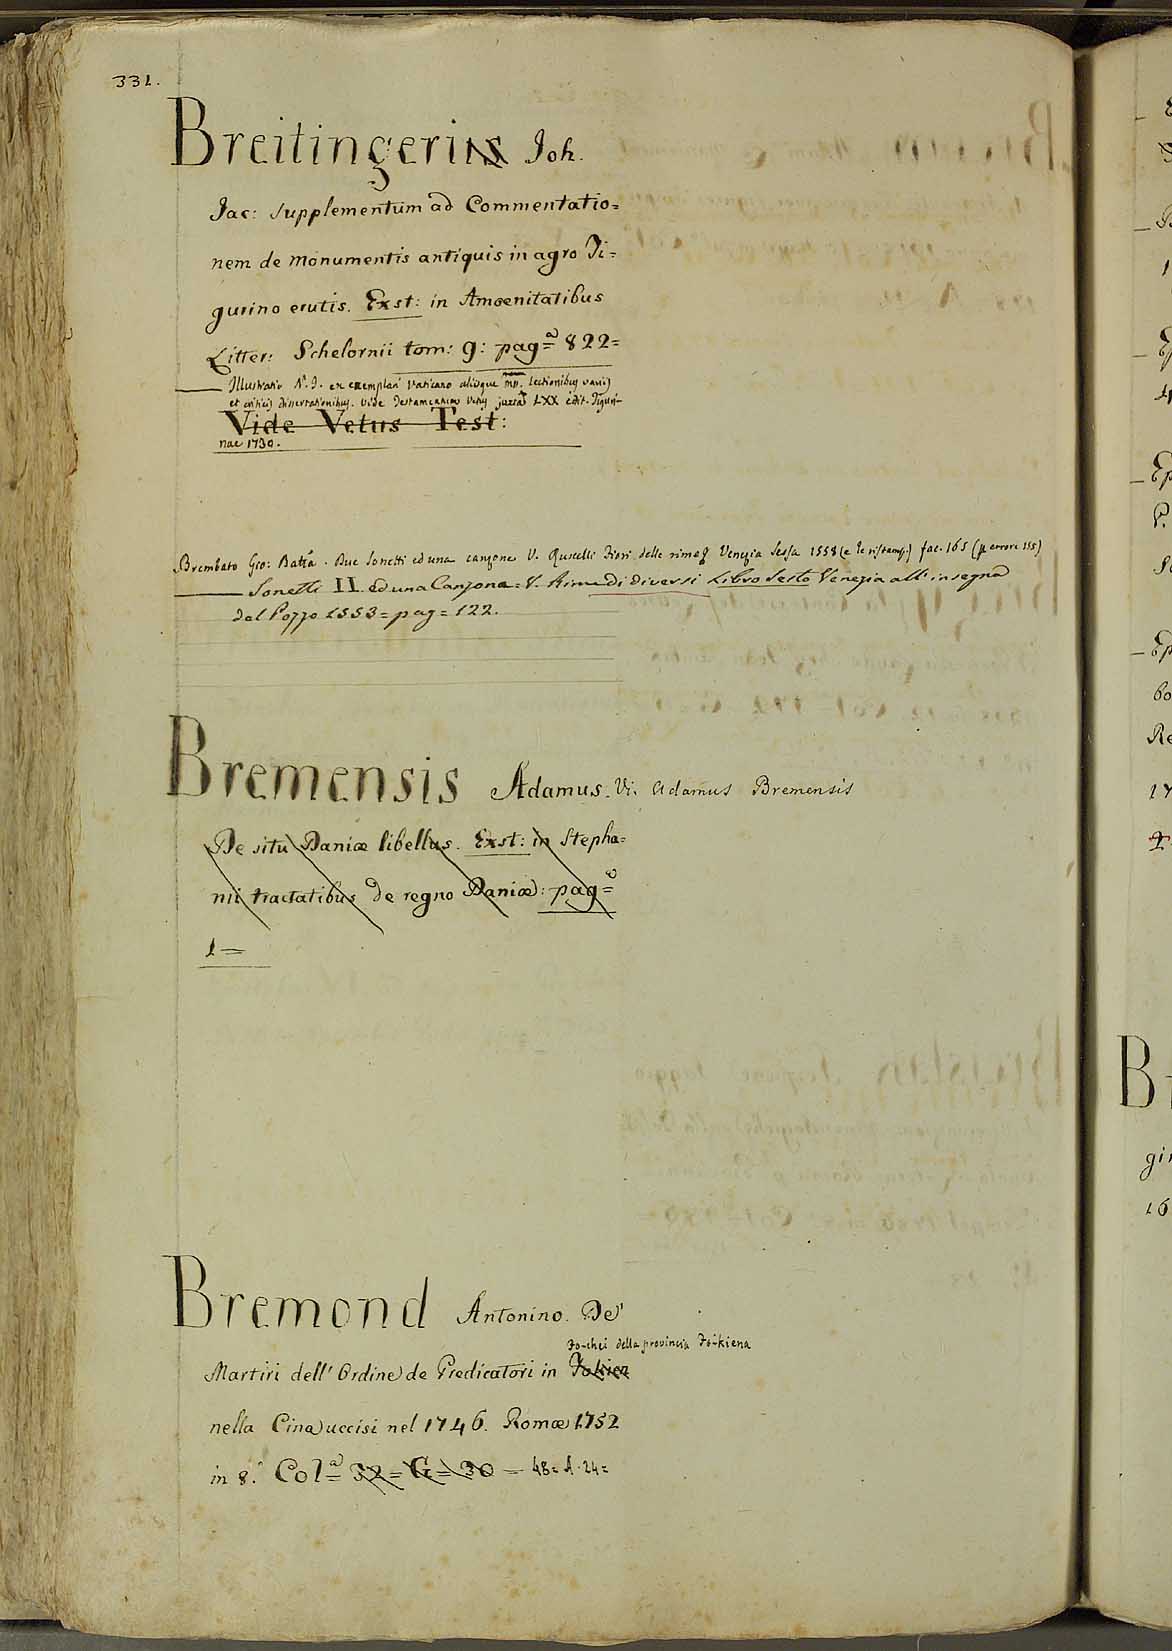 331.
Breitingerius Joh.
Jac: Supplementum ad Commentatio=
nem de monumentis antiquis in agro Ti=
gurino erutis. Exst: in Amoenitatibus
Litter: Schelornii tom: 9: pag.ª 822=
Illustratio exemplari Vaticano aliisque lectionibus variis
et criticis dissertationibus. vide Testamentum Vetus juxta LXX edit. Tiguri-
Vide Vetus Test:
nae 1730.
Brembato Gio: Batta. Due Sonetti ed una canzone V. Ruscelli Fiori delle rime Venezia Sessa 1558 (e le ristamp.) fac. 165 (p errore 155)
Sonetti II. ed una Canzone = V. Rime di diversi Libro Sesto Venezia all'insegna
del Pozzo 1553 = pag = 122.
Bremensis Adamus. Vi. Adamus Bremensis
De situ Daniæ libellus. Exst: in Stepha=
nii tractatibus de regno Daniæ: pag=ª
1=
Bremond Antonino. De'
Fo-chei della provincia Fo-kiena
Martiri dell' Ordine de Predicatori in Fokien
nella Cina uccisi nel 1746. Romæ 1752
in 8.° Col=ª 32 = G = 30 = 48 = A. 24 =
B
gi
16